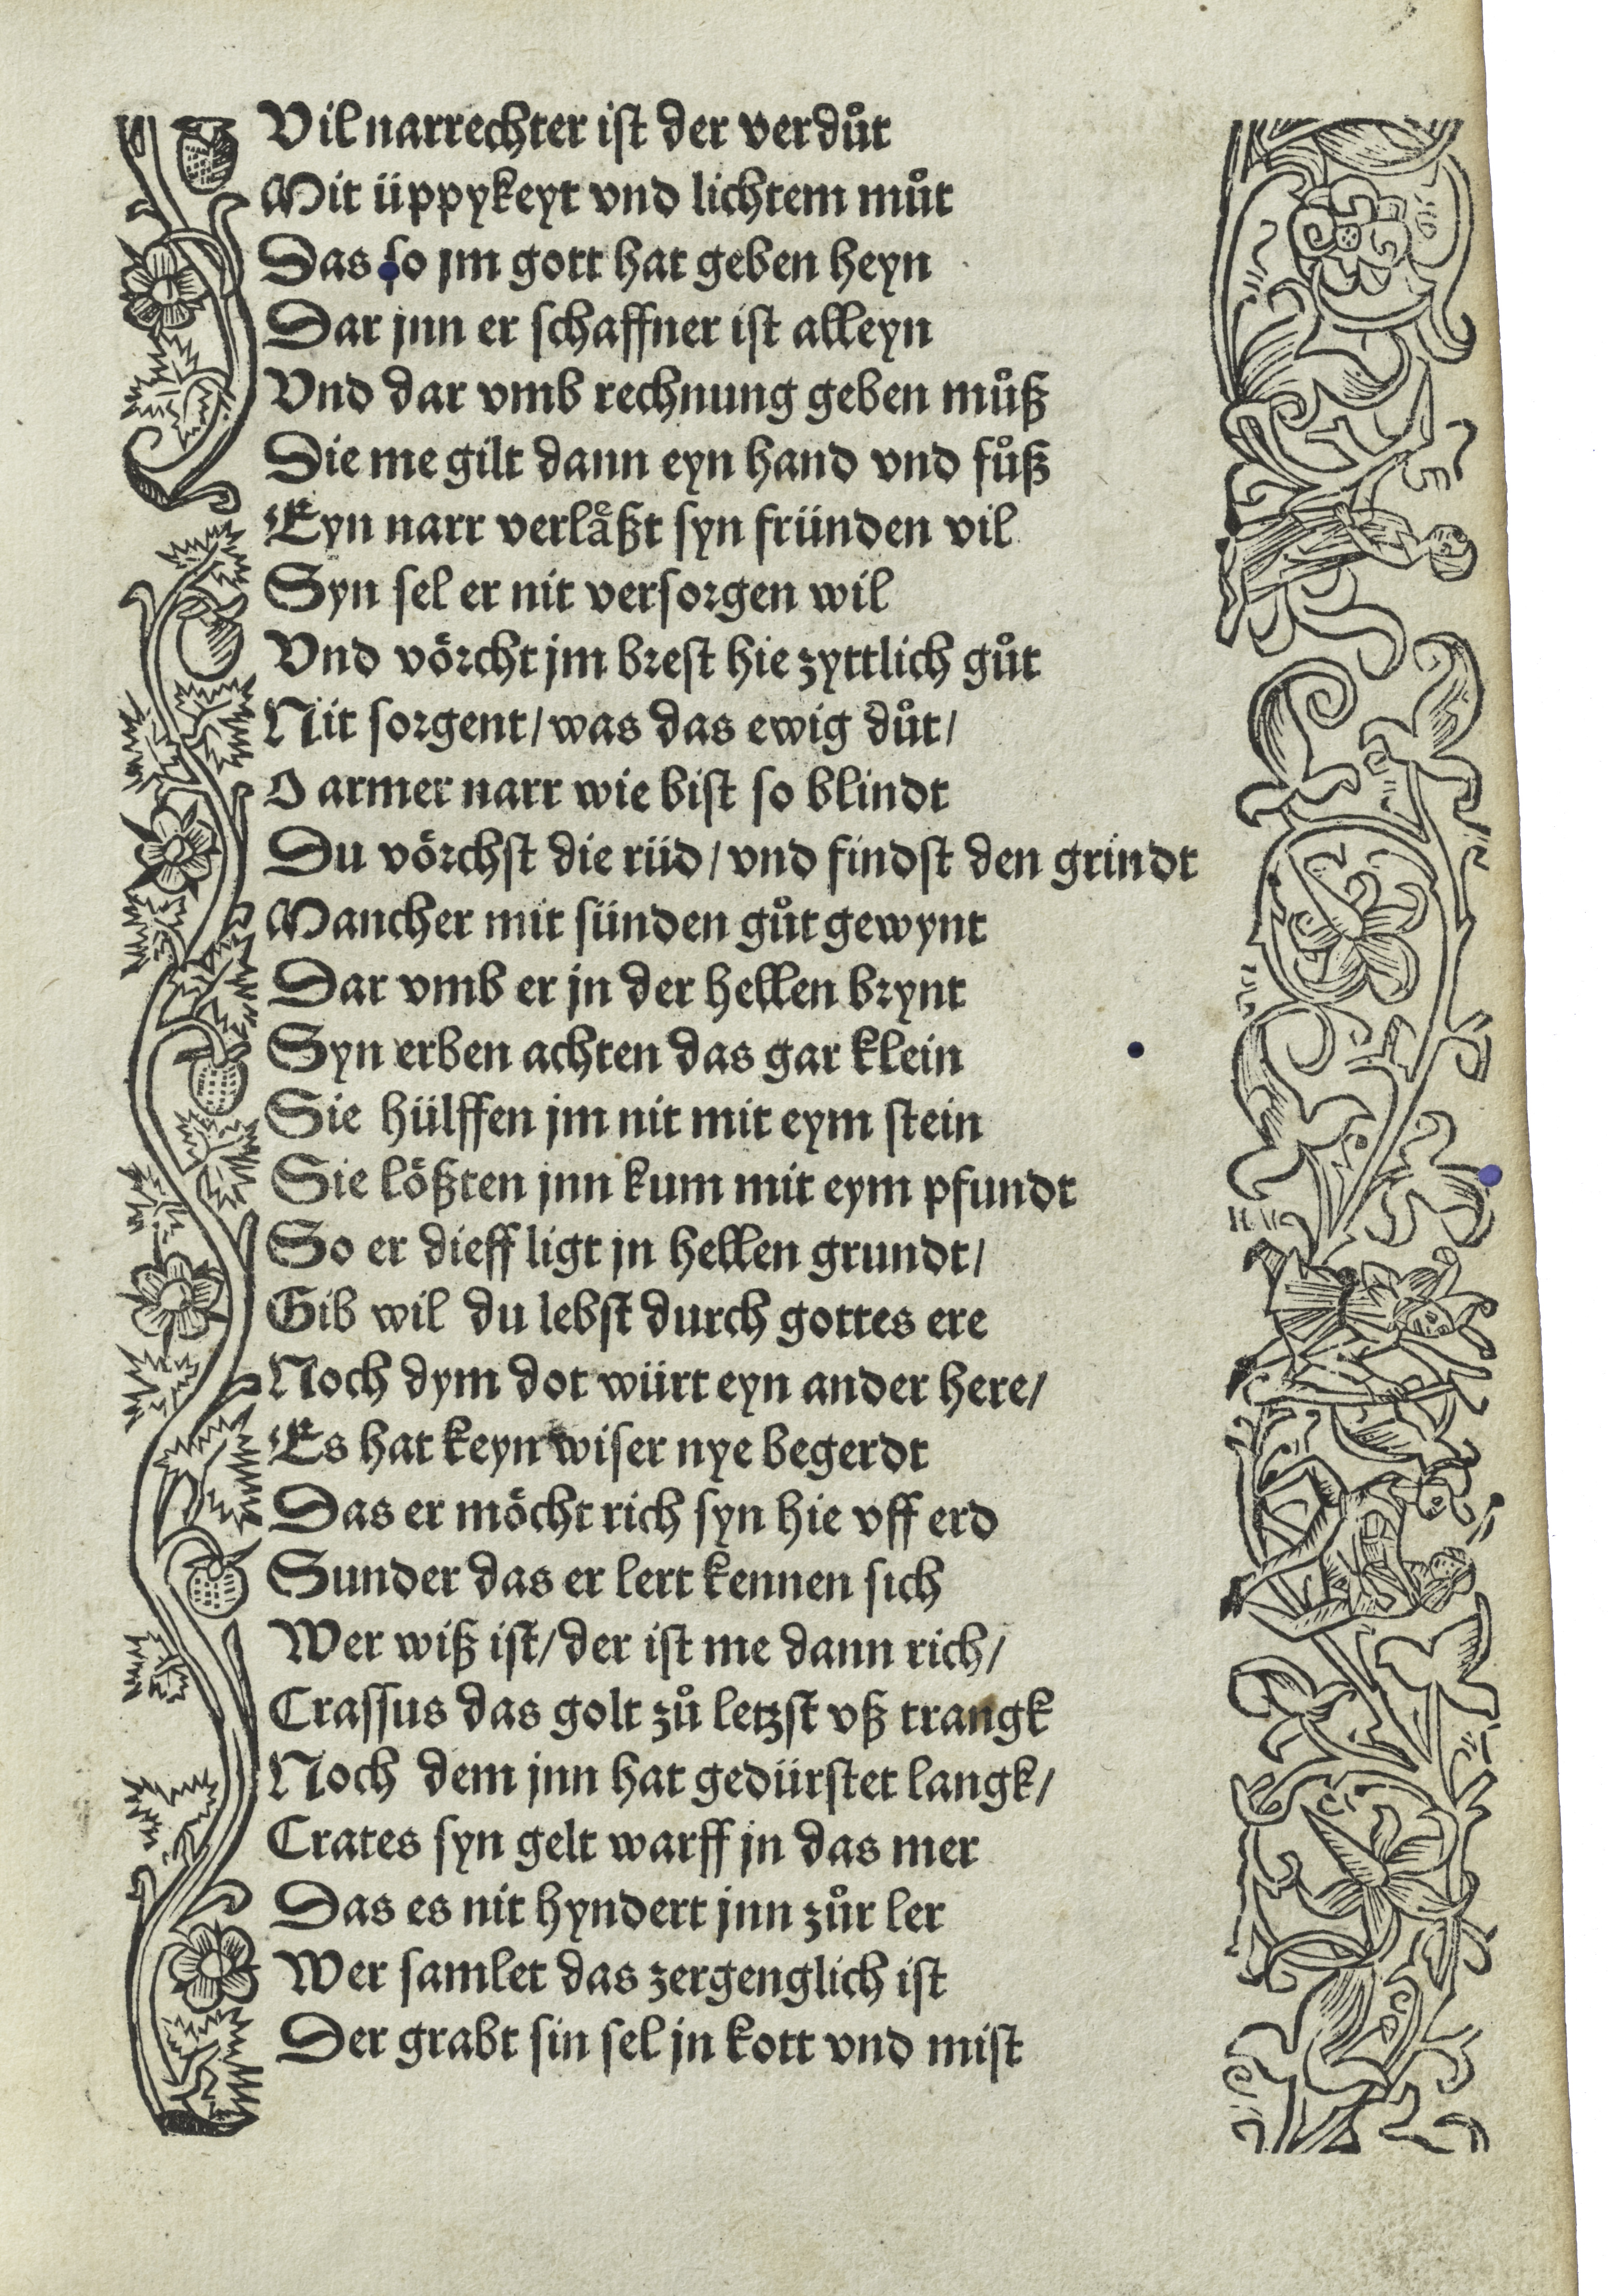 Vil narrechter ist der verdůt
Mit üppykeyt vnd lichtem můt
Das so jm gott hat geben heyn
Dar jnn er schaffner ist alleyn
Vnd dar vmb rechnung geben můß
Die me gilt dann eyn hand vnd fůß
Eyn narr verlaͤßt syn fründen vil
Syn sel er nit versorgen wil
Vnd voͤrcht jm brest hie zyttlich gůt
Nit sorgent/ was das ewig důt/
O armer narr wie bist so blindt
Du voͤrchst die rüd/ vnd findst den grindt
Mancher mit sünden gůt gewynt
Dar vmb er jn der hellen brynt
Syn erben achten das gar klein
Sie hülffen jm nit mit eym stein
Sie loͤßten jnn kum mit eym pfundt
So er dieff ligt jn hellen grundt/
Gib wil du lebst durch gottes ere
Noch dym dot würt eyn ander here/
Es hat keyn wiser nye begerdt
Das er moͤcht rich syn hie vff erd
Sunder das er lert kennen sich
Wer wiß ist/ der ist me dann rich/
Crassus das golt zů letzst vß trangk
Noch dem jnn hat gedürstet langk/
Crates syn gelt warff jn das mer
Das es nit hyndert jnn zůr ler
Wer samlet das zergenglich ist
Der grabt sin sel jn kott vnd mist